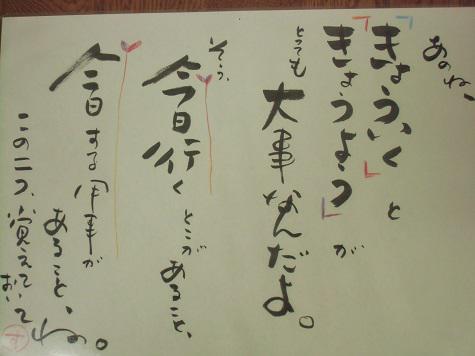 あのね、
「きょういく」と
「きょうよう」が
とっても大事なんだよ。
そう、
今日行くとこがあること、
今日する用事が
あること、
この二つ、覚えていて
おいてね。
す